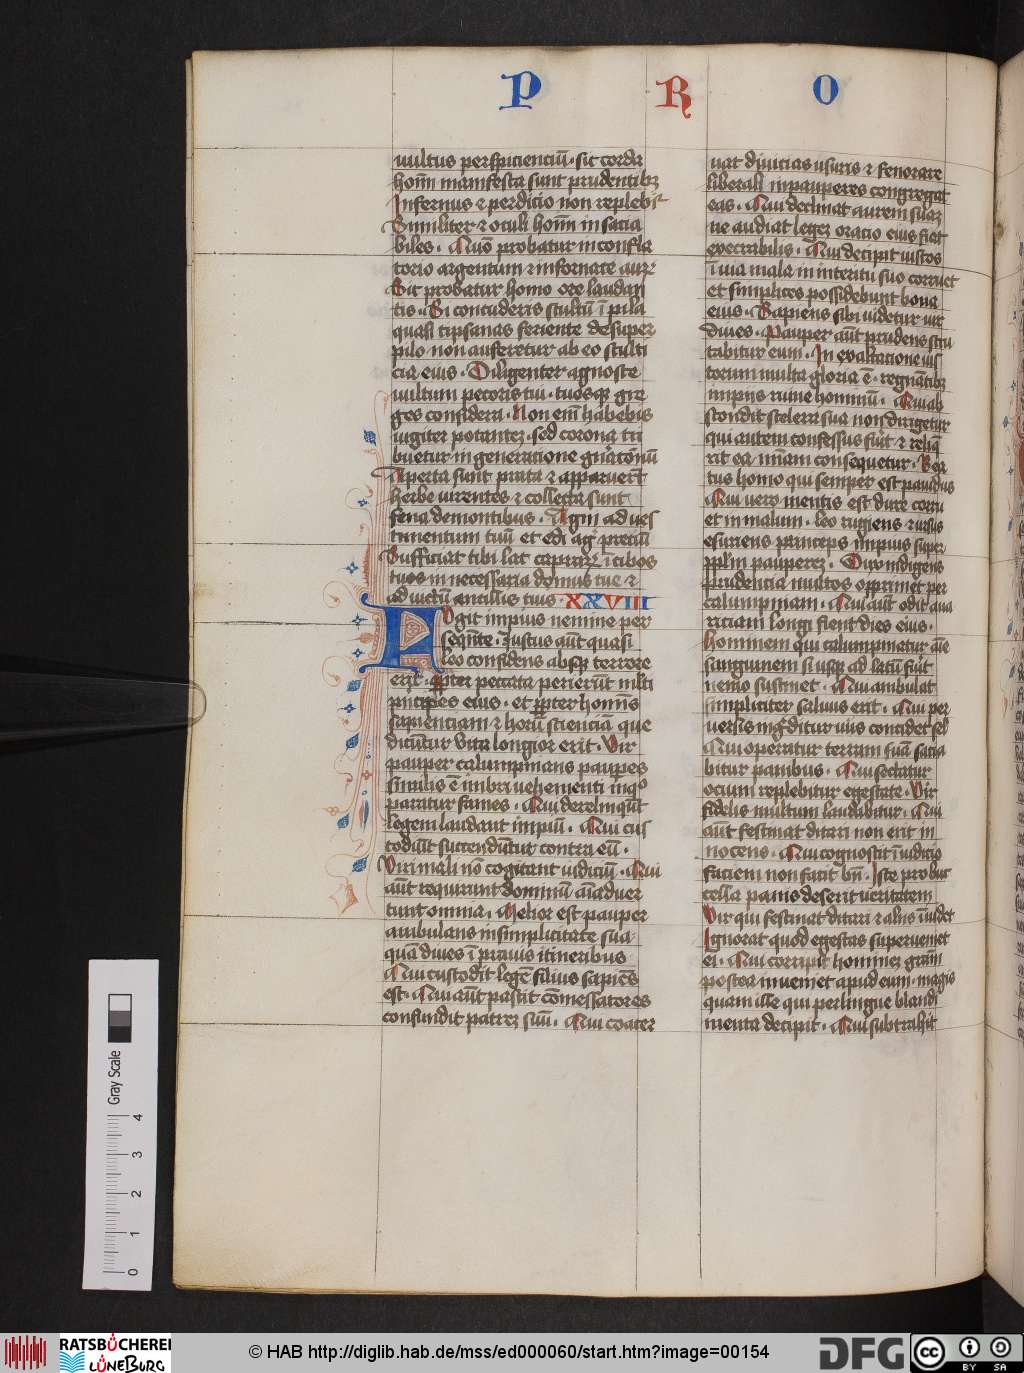 P R O
uultus perspiciencium · sic corda
hom̄ manifesta sunt prudentibꝫ
Infernus ⁊ perdicio non replebit᷑
Similiter ⁊ oculi hom̄ insacia
biles · Quō probatur in confla
torio argentum ⁊ in fornace aurꝝ
Sic probatur homo ore laudan
tis · Si contuderis stultū ī pila
quasi tipsanas feriente desuper
pilo non auferetur ab eo stulti
cia eius · Diligenter agnosce
uultum pecoris tui · tuosqꝫ gre
ges considera · Non em̄ habebis
iugiter potenteꝫ · sed corona tri
buetur in generatione gnātonū
Aperta sunt prata ⁊ apparuerūt
herbe uirentes ⁊ collecta sunt
fena de montibus · Agni ad ues
timentum tuū et edi agͥ preciū
Sufficiat tibi lac capraꝝ ī cibos
tuos in necessaria domus tue ⁊
ad uictū ancillis tuis · XXVIII
Fugit impius nemine per
seqn̄te · Iustus aūt quasi
leo confidens absqꝫ terrore
erit · ꝓpter peccata perierūt mlti
pͥncipes eius · et ꝓpter homīs
sapienciam ⁊ horū scienciā que
dicūtur uita longior erit · Vir
pauper calumpnians paupes
similis ē imbri uehementi inqͦ
paratur fames · Qui derelinqūt
legem laudant impiū · Qui cus
todiūt succendūtur contra eū ·
Viri mali nō cogitant iudiciū · Qui
aūt requirunt dominū aīaduer
tunt omnia · Melior est pauper
ambulans in simplicitate sua ·
quā diues ī prauis itineribus
Qui custodit legē filius sapiēs
est · Qui aūt pascit cōmessatores
confundit patreꝫ suū · Qui coacer
uat diuicias usuris ⁊ fenorare
liberali in pauperes congregat
eas · Qui declinat aurem suaꝫ
ne audiat legeꝫ oracio eius fiet
execrabilis · Qui decipit iustos
ī uia mala in interitu suo corruet
et simplices possidebunt bona
eius · Sapiens sibi uidetur uir
diues · Pauper aūt prudens scru
tabitur eum · In exaltacione ius
torum multa gloria ē · regnātibꝫ
impiis ruine hominū · Qui ab
scondit scelera sua non dirigetur
qui autem confessus fuit ⁊ reliq̄
rit ea mīam consequetur · Bea
tus homo qui semper est pauidus
Qui uero mentis est dure corru
et in malum · Leo rugiens ⁊ ursus
esuriens princeps impius super
ppl̄m pauperem · Dux indigens
prudencia multos opprimet per
calumpniam · Qui aūt odit aua
riciam longi fient dies eius ·
Hominem qui calumpniatur aīe
sanguinem si usqꝫ ad lacū fuit
nemo sustinet · Qui ambulat
simpliciter saluus erit · Qui per
uersis ingͣditur uiis concidet sel
Qui operatur terram suā sacia
bitur panibus · Qui sectatur
ocium replebitur egestate · Vir
fidelis multum laudabitur · Qui
aūt festinat ditari non erit in
nocens · Qui cognoscit ī iudicio
faciem non facit bn̄ · Iste pro buc
cella panis deserit ueritatem
Vir qui festinat ditari ⁊ aliis īuidet
Ignorat quod egestas superueniet
ei · Qui corripit hominez grām
postea inueniet apud eum · magis
quam ille qui per lingue blandi
menta decipit · Qui subtrahit
Gray Scale
0 1 2 3 4
RATSBÜCHEREI
LÜNEBURG
© HAB http://diglib.hab.de/mss/ed000060/start.htm?image=00154
DFG
cc BY SA